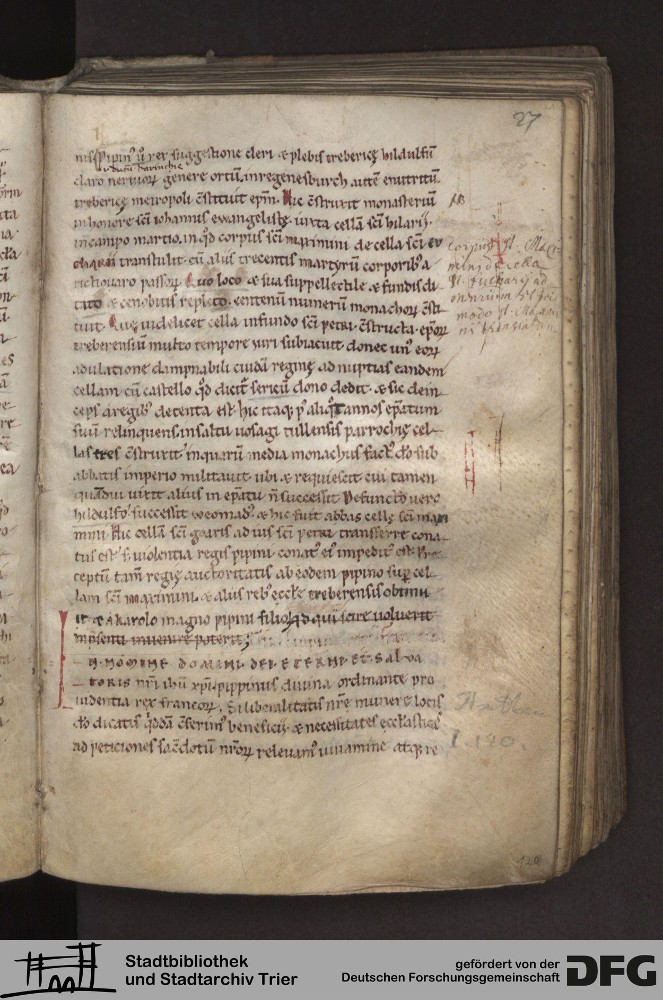 27
nis Pipin' u rex suggestione cleri & plebis treberice hildulfū
claro neruiorꝝ genere ortū. in regenesburch autē enutritū.
treberice metropoli cstituit epm. Hic cstruxit monasteriū
in honore sci iohannis ewangeliste. iuxta cellā sci hilarii.
in campo martio. in qd corpus sci maximini de cella sci eu
charii transtulit. cū aliis trecentis martyrū corporibus a
rictiouaro passorꝝ. Quo loco & sua suppellectile & fundis di
tato & cenobitis repleto. centenū numerū monachorꝝ csti
tuit. Que uidelicet cella in fundo sci petri cstructa. eporꝝ
treberensiū multo tempore iuri subiacuit. donec un' eorꝝ
adulatione dampnabili cuidā regine ad nuptias eandem
cellam cū castello qd dicit sericū dono dedit. & sic dein
ceps a regib' detenta est. Hic itaq; p' aliqt annos epatum
suū relinquens. in saltu uosagi tullensis parrochie cel
las tres cstruxit. in quarū media monachus fact'. do sub
abbatis imperio militauit. ubi & requiescit. cui tamen
quādiu uixit alius in epatu n successit. Defuncto uero
hildulfo successit weomad'. & hic fuit abbas celle sci maxi
mini. Hic cellā sci
ad ius sci petri transferre cona
tus est. s; uiolentia regis pipini conat' ei' impedit' est. Pre
ceptū tam regie auctoritatis ab eodem pipino sup cel
lam sci maximini. & alias reb' eccle treberensis obtinu
it & a karolo magno pipini filio. qd qui scire uoluerit
inpsenti inuenire poterit.
IN NOMINE DOMINI DEI ETERNI ET SALVA
TORIS nri ihu xpi. pippinus diuina ordinante pro
uidentia rex francorꝝ. Si liberalitatis nre munere locis
do dicatis qdda cferim' beneficii. & necessitates ecclasticas
ad peticiones sacdotū nrorꝝ releuam' iuuamine atq; re
NB
Corpus St. Maxi
mini de cella
St. Eucharij ad
I. 190.
120
Stadtbibliothek
und Stadtarchiv Trier
gefördert von der
Deutschen Forschungsgemeinschaft
DFG